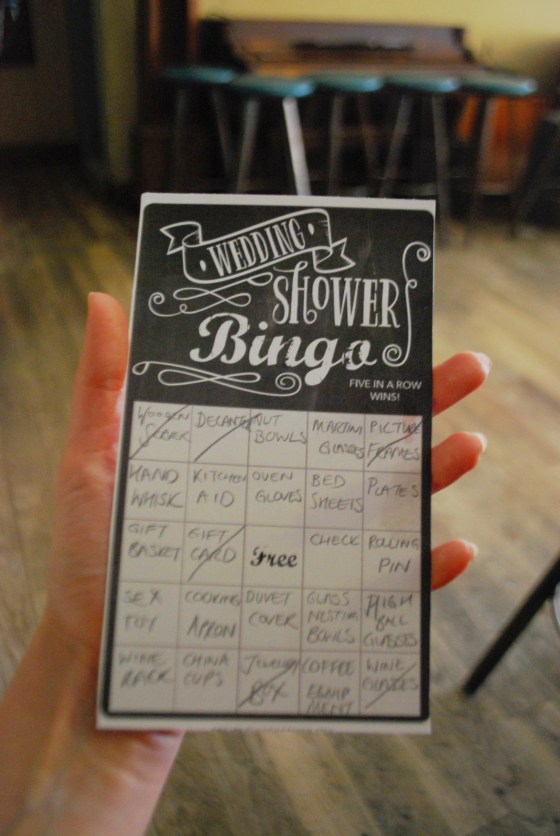 WEDDING
SHOWER
Bingo
FIVE IN A ROW
WINS!
WOODEN DECANTER NUT MARTINI PICTURE
BOWLS GLASSES FRAMES
HAND KITCHEN OVEN BED PLATES
WHISK AID GLOVES SHEETS
GIFT GIFT Free CHECK ROLLING
BASKET CARD PIN
SEX COOKING DUVET GLASS HIGH
TOY APRON COVER NESTING BALL
BOWLS GLASSES
WINE CHINA JEWELRY COFFEE WINE
RACK CUPS BOX EQUIP GLASSES
MENT